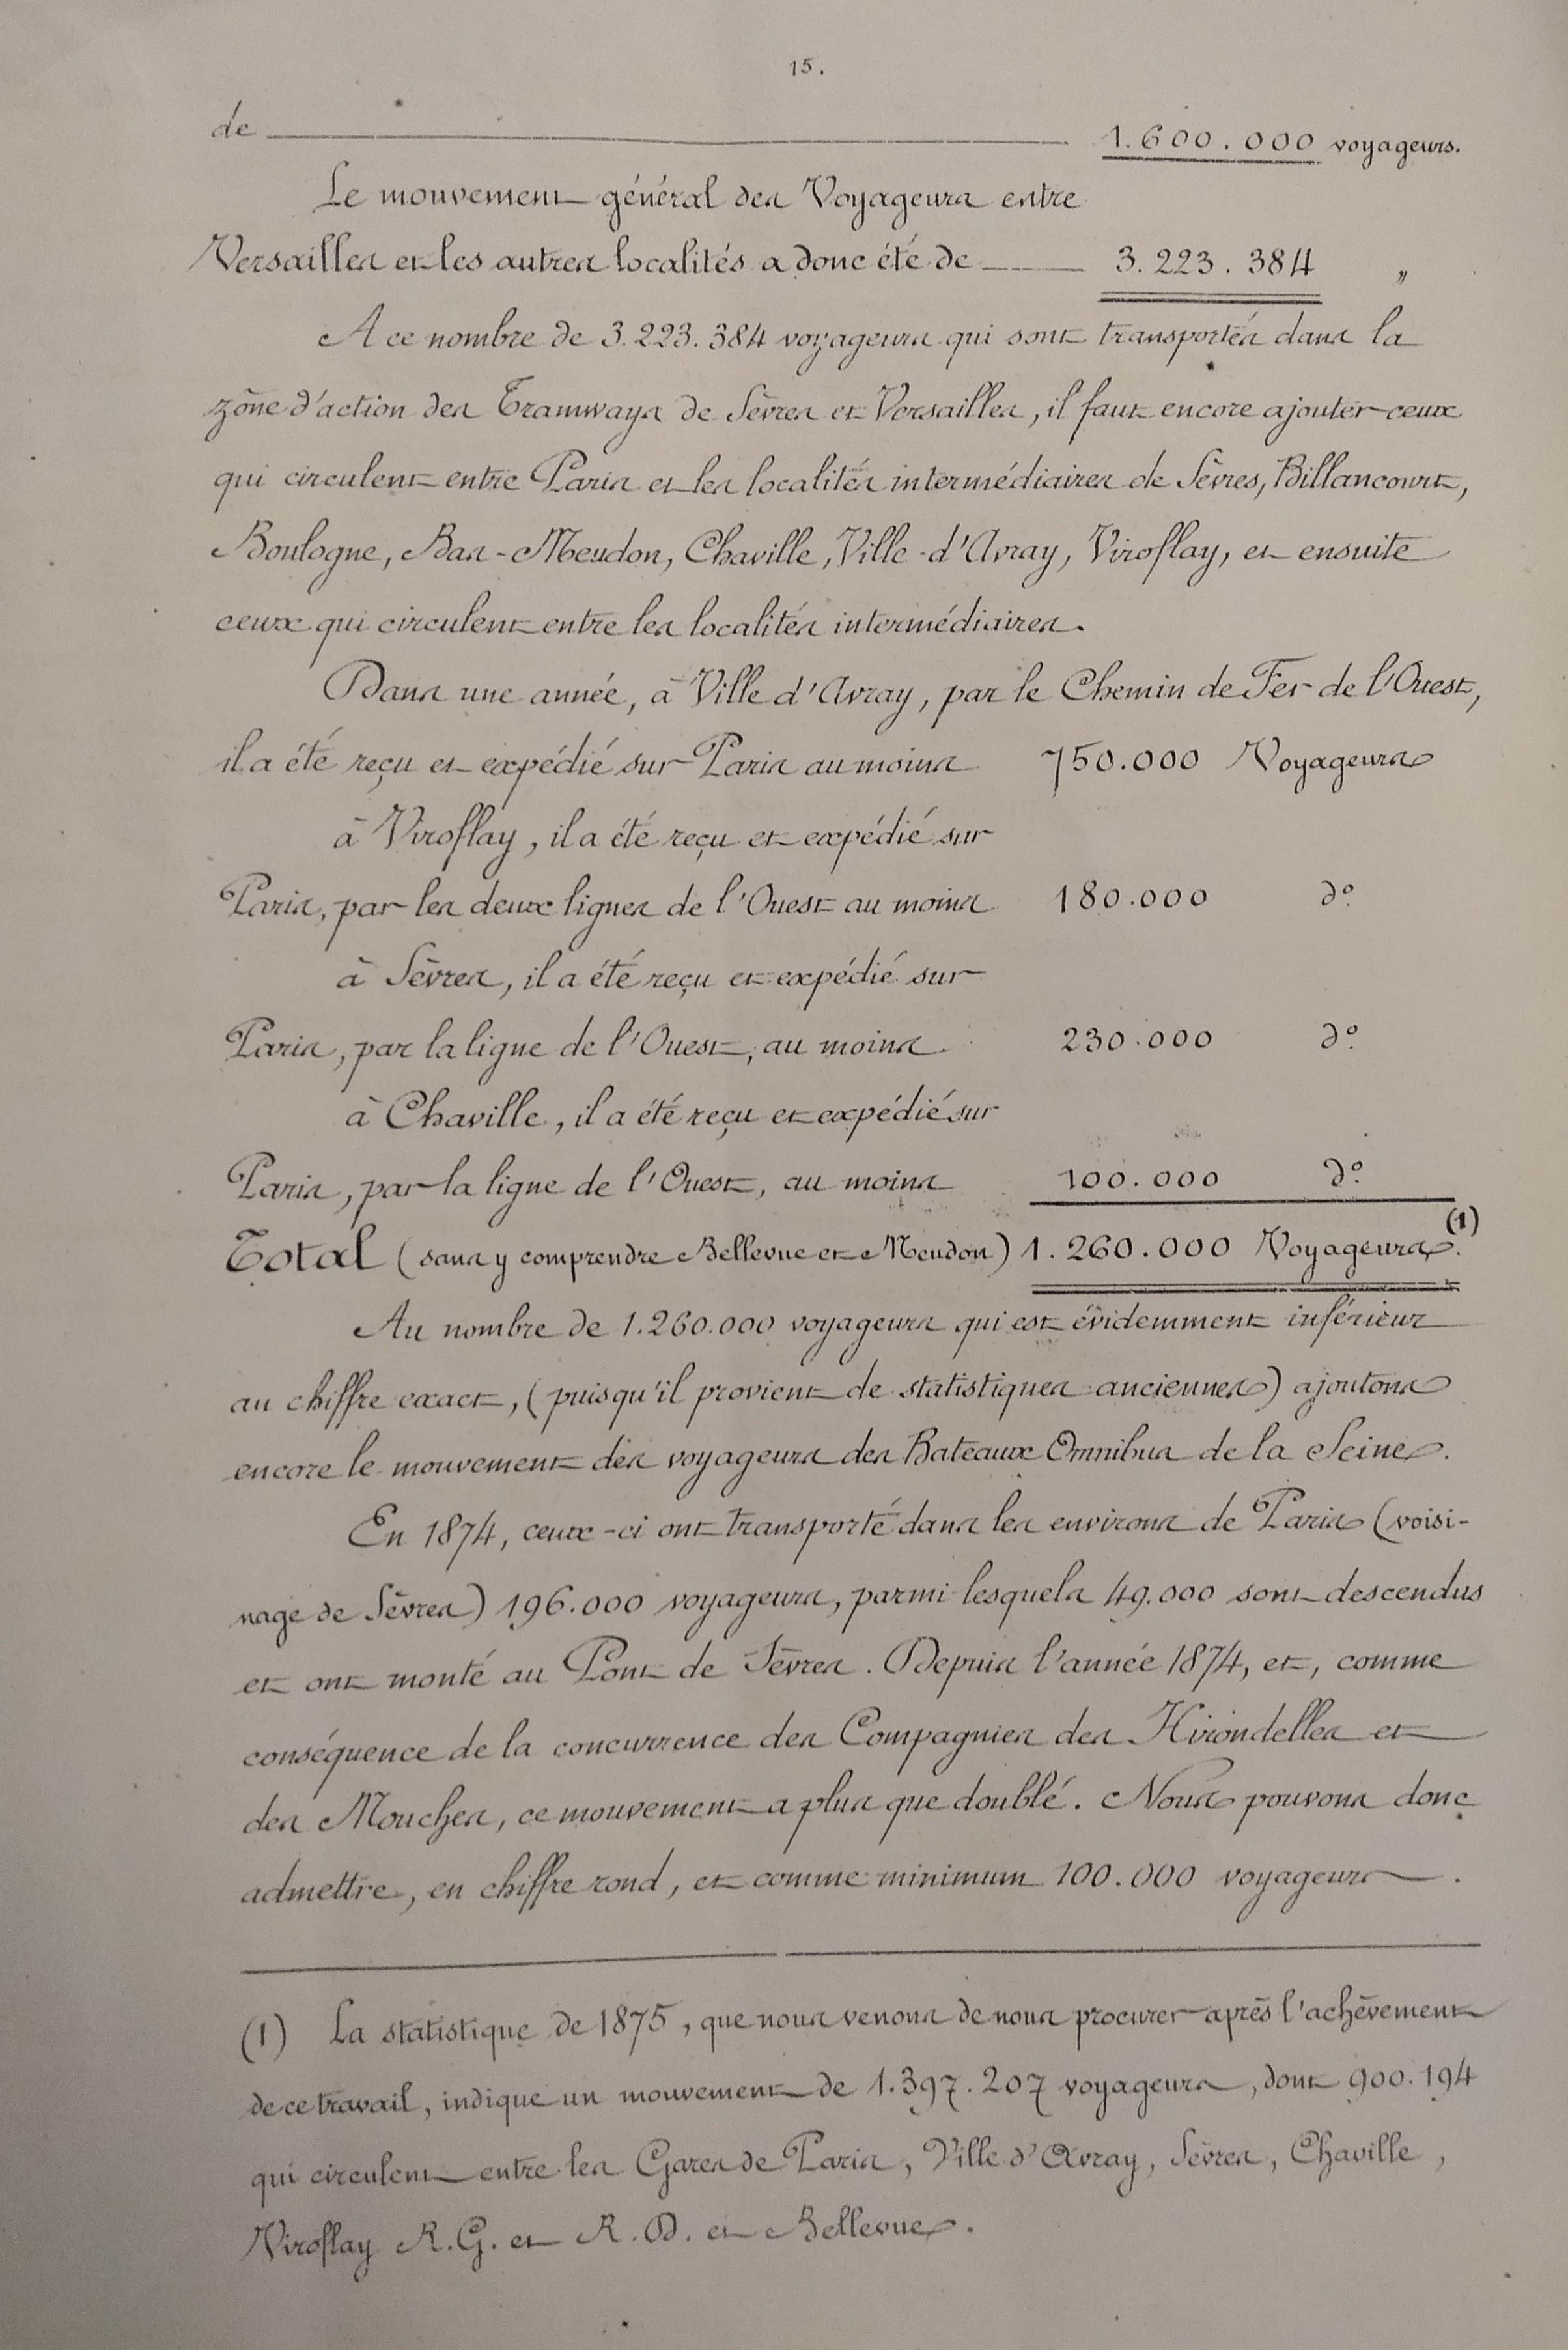 15.
de 1.600.000 voyageurs.
Le mouvement général des Voyageurs entre
Versailles et les autres localités a donc été de 3.223.384 "
A ce nombre de 3.223.384 voyageurs qui sont transportés dans la
zône d'action des Tramways de Sèvres et Versailles, il faut encore ajouter ceux
qui circulent entre Paris et les localités intermédiaires de Sèvres, Billancourt,
Boulogne, Bas-Meudon, Chaville, Ville-d'Avray, Viroflay, et ensuite
ceux qui circulent entre les localités intermédiaires.
Dans une année, à Ville d'Avray, par le Chemin de Fer de l'Ouest,
il a été reçu et expédié sur Paris au moins 750.000 Voyageurs
à Viroflay, il a été reçu et expédié sur
Paris, par les deux lignes de l'Ouest au moins 180.000 d°.
à Sèvres, il a été reçu et expédié sur
Paris, par la ligne de l'Ouest, au moins 230.000 d°.
à Chaville, il a été reçu et expédié sur
Paris, par la ligne de l'Ouest, au moins 100.000 d°.
Total (sans y comprendre Bellevue et Meudon) 1.260.000 Voyageurs. (1)
Au nombre de 1.260.000 voyageurs qui est évidemment inférieur
au chiffre exact, (puisqu'il provient de statistiques anciennes) ajoutons
encore le mouvement des voyageurs des Bateaux Omnibus de la Seine.
En 1874, ceux-ci ont transporté dans les environs de Paris (voisi-
nage de Sèvres) 196.000 voyageurs, parmi lesquels 49.000 sont descendus
et ont monté au Pont de Sèvres. Depuis l'année 1874, et, comme
conséquence de la concurrence des Compagnies des Hirondelles et
des Mouches, ce mouvement a plus que doublé. Nous pouvons donc
admettre, en chiffre rond, et comme minimum 100.000 voyageurs.
(1) La statistique de 1875, que nous venons de nous procurer après l'achèvement
de ce travail, indique un mouvement de 1.397.207 voyageurs, dont 900.194
qui circulent entre les Gares de Paris, Ville d'Avray, Sèvres, Chaville,
Viroflay R.G. et R.D. et Bellevue.